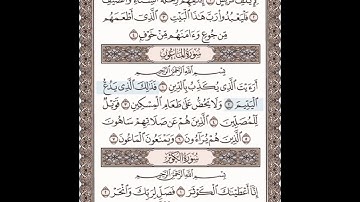 لِإِيلَٰفِ قُرَيْشٍ ۝١ إِۦلَٰفِهِمْ رِحْلَةَ ٱلشِّتَآءِ وَٱلصَّيْفِ
۝٢ فَلْيَعْبُدُوا۟ رَبَّ هَٰذَا ٱلْبَيْتِ ۝٣ ٱلَّذِىٓ أَطْعَمَهُم
مِّن جُوعٍ وَءَامَنَهُم مِّنْ خَوْفٍۭ ۝٤
سُورَةُ المَاعُونِ
بِسْمِ ٱللَّهِ ٱلرَّحْمَٰنِ ٱلرَّحِيمِ
أَرَءَيْتَ ٱلَّذِى يُكَذِّبُ بِٱلدِّينِ ۝١ فَذَٰلِكَ ٱلَّذِى يَدُعُّ
ٱلْيَتِيمَ ۝٢ وَلَا يَحُضُّ عَلَىٰ طَعَامِ ٱلْمِسْكِينِ ۝٣ فَوَيْلٌ
لِّلْمُصَلِّينَ ۝٤ ٱلَّذِينَ هُمْ عَن صَلَاتِهِمْ سَاهُونَ
۝٥ ٱلَّذِينَ هُمْ يُرَآءُونَ ۝٦ وَيَمْنَعُونَ ٱلْمَاعُونَ ۝٧
سُورَةُ الكَوْثَرِ
بِسْمِ ٱللَّهِ ٱلرَّحْمَٰنِ ٱلرَّحِيمِ
إِنَّآ أَعْطَيْنَٰكَ ٱلْكَوْثَرَ ۝١ فَصَلِّ لِرَبِّكَ وَٱنْحَرْ ۝٢